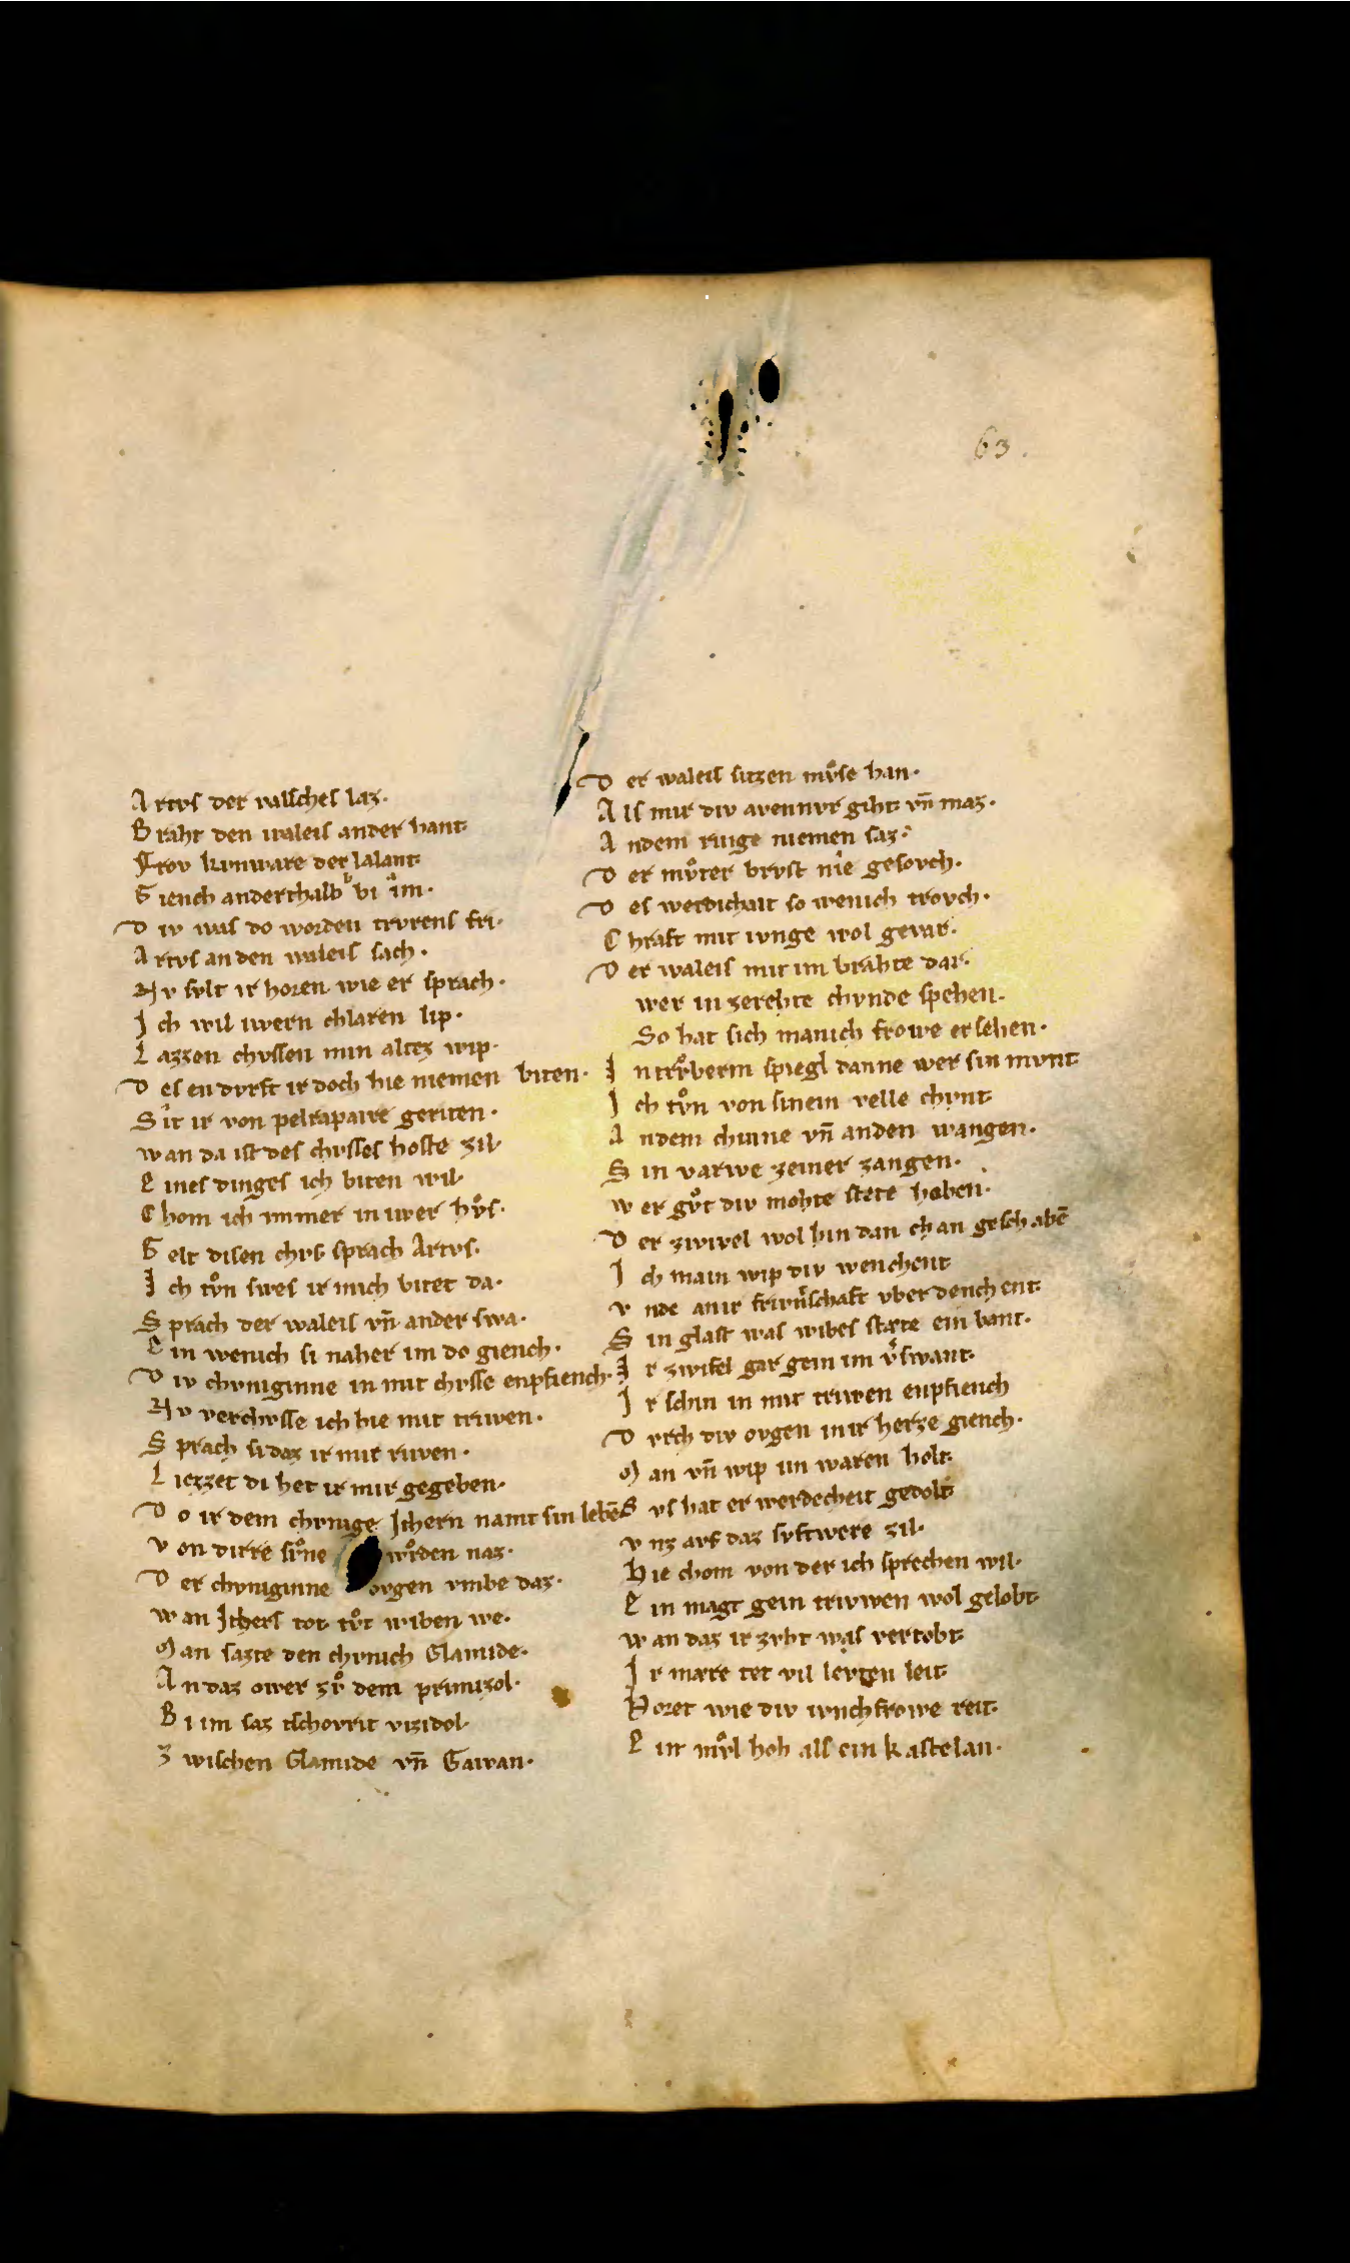 63.
Artvs der valsches laz·
Braht den waleis ander hant·
Frov kvnware der lalant·
Giench anderthalb bi im·
Div was do worden trvrens fri·
Artvs an den waleis sach·
Nv svlt ir horen wie er sprach·
Ich wil iwern chlaren lip·
Lazzen chvssen min altez wip·
Des en dvrft ir doch hie niemen biten·
Sit ir von pelrapaire geriten·
wan da ist des chvsses hoste zil·
Eines dinges ich biten wil·
Chom ich immer in iwer hvͦs·
Gelt disen chvs sprach Artvs·
Ich tvͦn swes ir mich bitet da·
Sprach der waleis vn̄ ander swa·
Ein wenich si naher im do giench·
Div chvniginne in mit chvsse enpfiench·
Nv verchvsse ich hie mit triwen·
Sprach si daz ir mit riwen·
Liezzet di het ir mir gegeben·
Do ir dem chvnige Ithern namt sin lebē
von dirre svͦne wrͦden naz·
Der chvniginne ovgen vmbe daz·
wan Ithers tot tvͦt wiben we·
Man sazte den chvnich Clamide·
An daz ower zvͦ dem primizol·
Bi im saz tschovrit vizidol·
Zwischen Clamide vn̄ Gawan·
Der waleis sitzen mvͦse han·
Als mir div aventivr giht vn̄ maz·
An dem ringe niemen saz·
Der mvͦter brvst nie gesovch·
Des werdichait so wenich trovch·
Chraft mit ivnge wol gevar·
Der waleis mit im brahte dar·
wer in zerehte chvnde spehen·
So hat sich manich frowe ersehen·
In trvͦberm spiegl danne wer sin mvnt·
Ich tvͦn von sinem velle chvnt·
An dem chinne vn̄ an den wangen·
Sin varwe zeiner zangen·
wer gvͦt div mohte stete haben·
Der zwivel wol hin dan chan geschabē
Ich main wip div wenchent
vnde an ir frivn̄tschaft vber denchent·
Sin glast was wibes stæte ein bant·
Ir zwifel gar gein im v̓swant·
Ir schin in mit triwen enpfiench
Dvrch div ovgen in ir herze giench·
Man vn̄ wip im waren holt·
Svs hat er werdecheit gedolt·
vnz avf daz svftwere zil·
Hie chom von der ich sprechen wil·
Ein magt gein triwwen wol gelobt·
wan daz ir zvht was vertobt·
Ir mære tet vil levten leit·
Horet wie div ivnchfrowe reit·
Ein mvͦl hoh als ein kastelan·